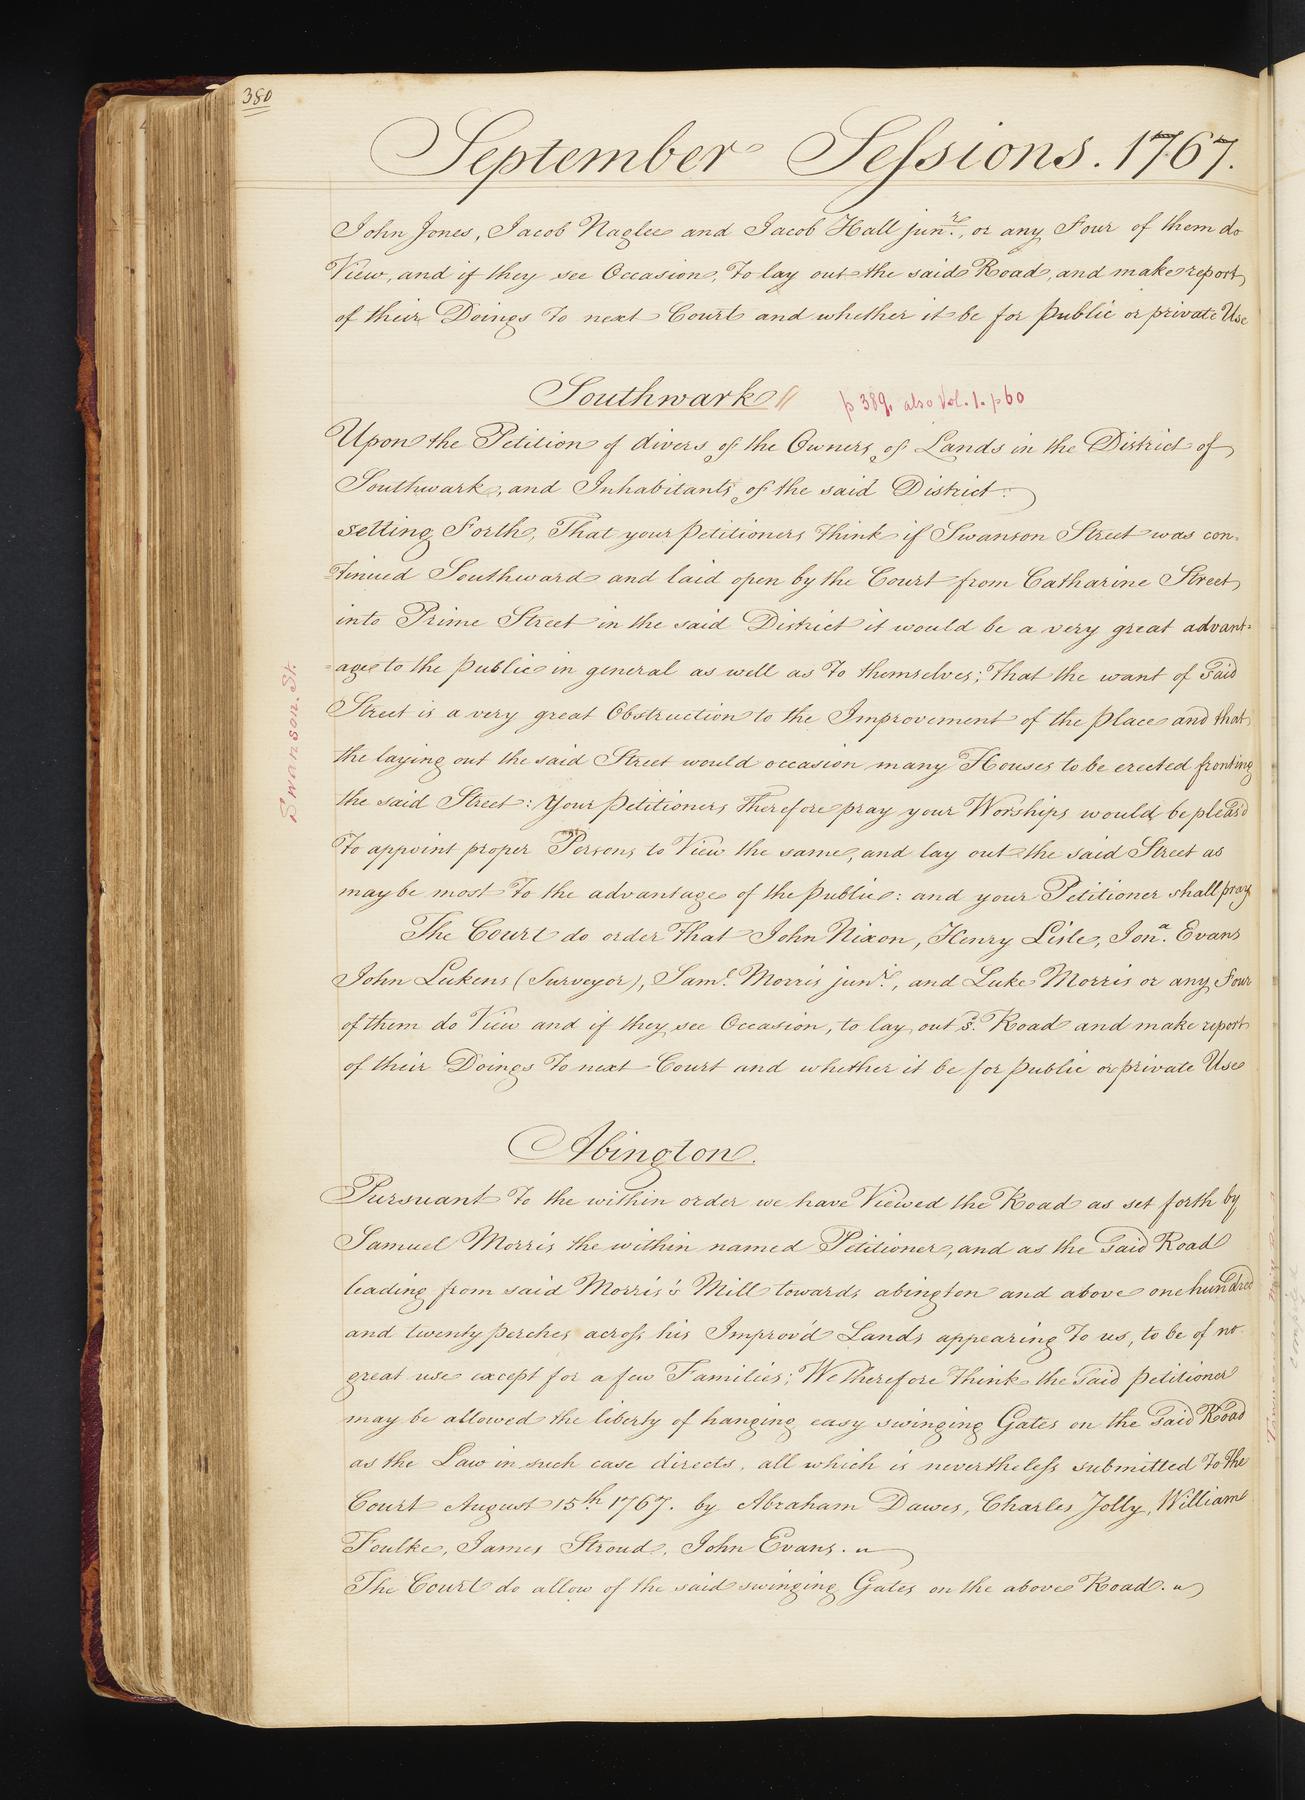 380
September Sessions. 1767.
John Jones, Jacob Naglee and Jacob Hall junr., or any Four of them do
View, and if they see Occasion, To lay out the said Road, and make report
of their Doings To next Court and whether it be for Public or private Use
Southwark // p 389. also Vol. 1. p 60
Upon the Petition of divers of the Owners of Lands in the District of
Southwark, and Inhabitants of the said District:
setting Forth, That your Petitioners Think if Swanson Street was con=
=tinued Southward and laid open by the Court from Catharine Street
into Prime Street in the said District it would be a very great advant=
=age to the Public in general as well as To themselves; That the want of said
Swanson. St.
Street is a very great Obstruction to the Improvement of the Place and that
the laying out the said Street would occasion many Houses to be erected fronting
the said Street: Your Petitioners Therefore pray your Worships would be pleas'd
To appoint proper Persons to View the same, and lay out the said Street as
may be most To the advantage of the Public: and your Petitioner shall pray
The Court do order That John Nixon, Henry Lisle, Jona. Evans
John Lukens (Surveyor), Saml. Morris junr., and Luke Morris or any Four
of them do View and if they see Occasion, to lay out sd. Road and make report
of their Doings To next Court and whether it be for Public or private Use
Abington.
Pursuant To the within order we have Viewed the Road as set forth by
Samuel Morris the within named Petitioner, and as the said Road
leading from said Morris's Mill towards abington and above one hundred
and twenty perches across his Improv'd Lands appearing To us, to be of no
great use except for a few Families; We Therefore Think the said petitioner
may be allowed the liberty of hanging easy swinging Gates on the said Road
as the Law in such case directs, all which is nevertheless submitted To the
Court August 15th 1767. by Abraham Dawes, Charles Jolly, William
Foulke, James Stroud, John Evans.
The Court do allow of the said swinging Gates on the above Road.